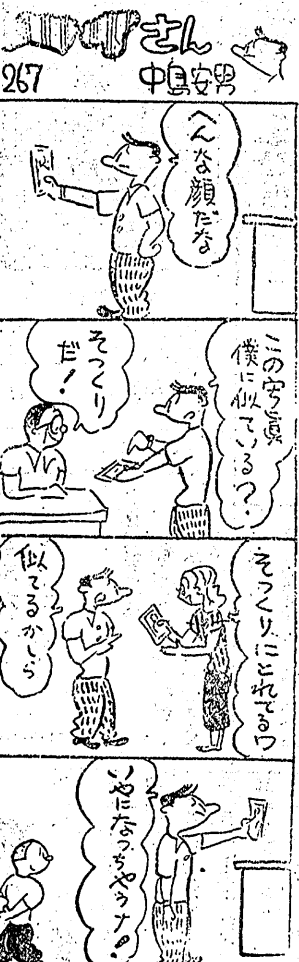 さん
267
中島安男
へんな顔だな
この写真
僕に似ている?
そつくり
だ!
そつくりにとれてるワ
似てるかしら
いやになつちやうナ!